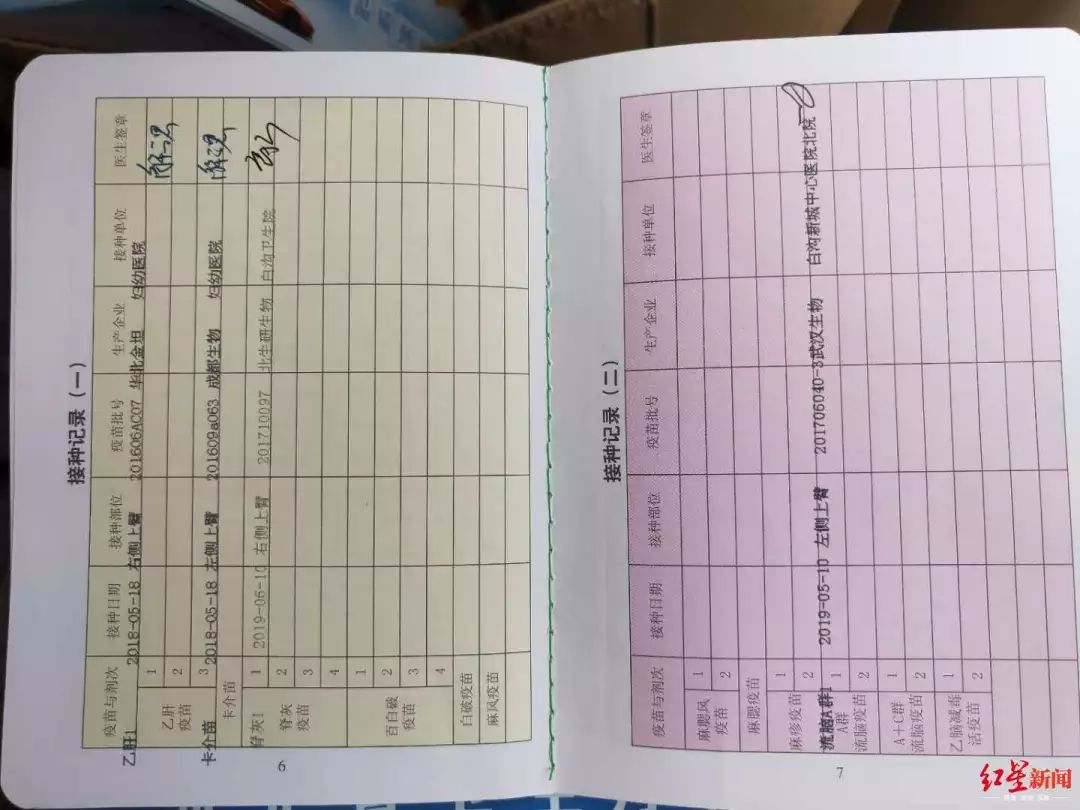 接种记录（一）
疫苗与剂次 接种日期 接种部位 疫苗批号 生产企业 接种单位 医生签章
乙肝1 2018-05-18 右侧上臂 201606AC07 华北金坦 妇幼医院
乙肝疫苗 1
2
3
卡介苗 2018-05-18 左侧上臂 201609a063 成都生物 妇幼医院
卡介苗
脊灰1 2019-06-10 右侧上臂 201710097 北生研生物 白沟卫生院
脊灰疫苗 1
2
3
4
百白破疫苗 1
2
3
4
白破疫苗
麻风疫苗
6
接种记录（二）
疫苗与剂次 接种日期 接种部位 疫苗批号 生产企业 接种单位 医生签章
麻腮风疫苗 1
2
麻腮疫苗
麻疹疫苗 1
2
流脑A群1 2019-05-10 左侧上臂 201706040-3 武汉生物 白沟新城中心医院北院
A群流脑疫苗 1
2
A+C群流脑疫苗 1
2
乙脑减毒活疫苗 1
2
7
红星新闻